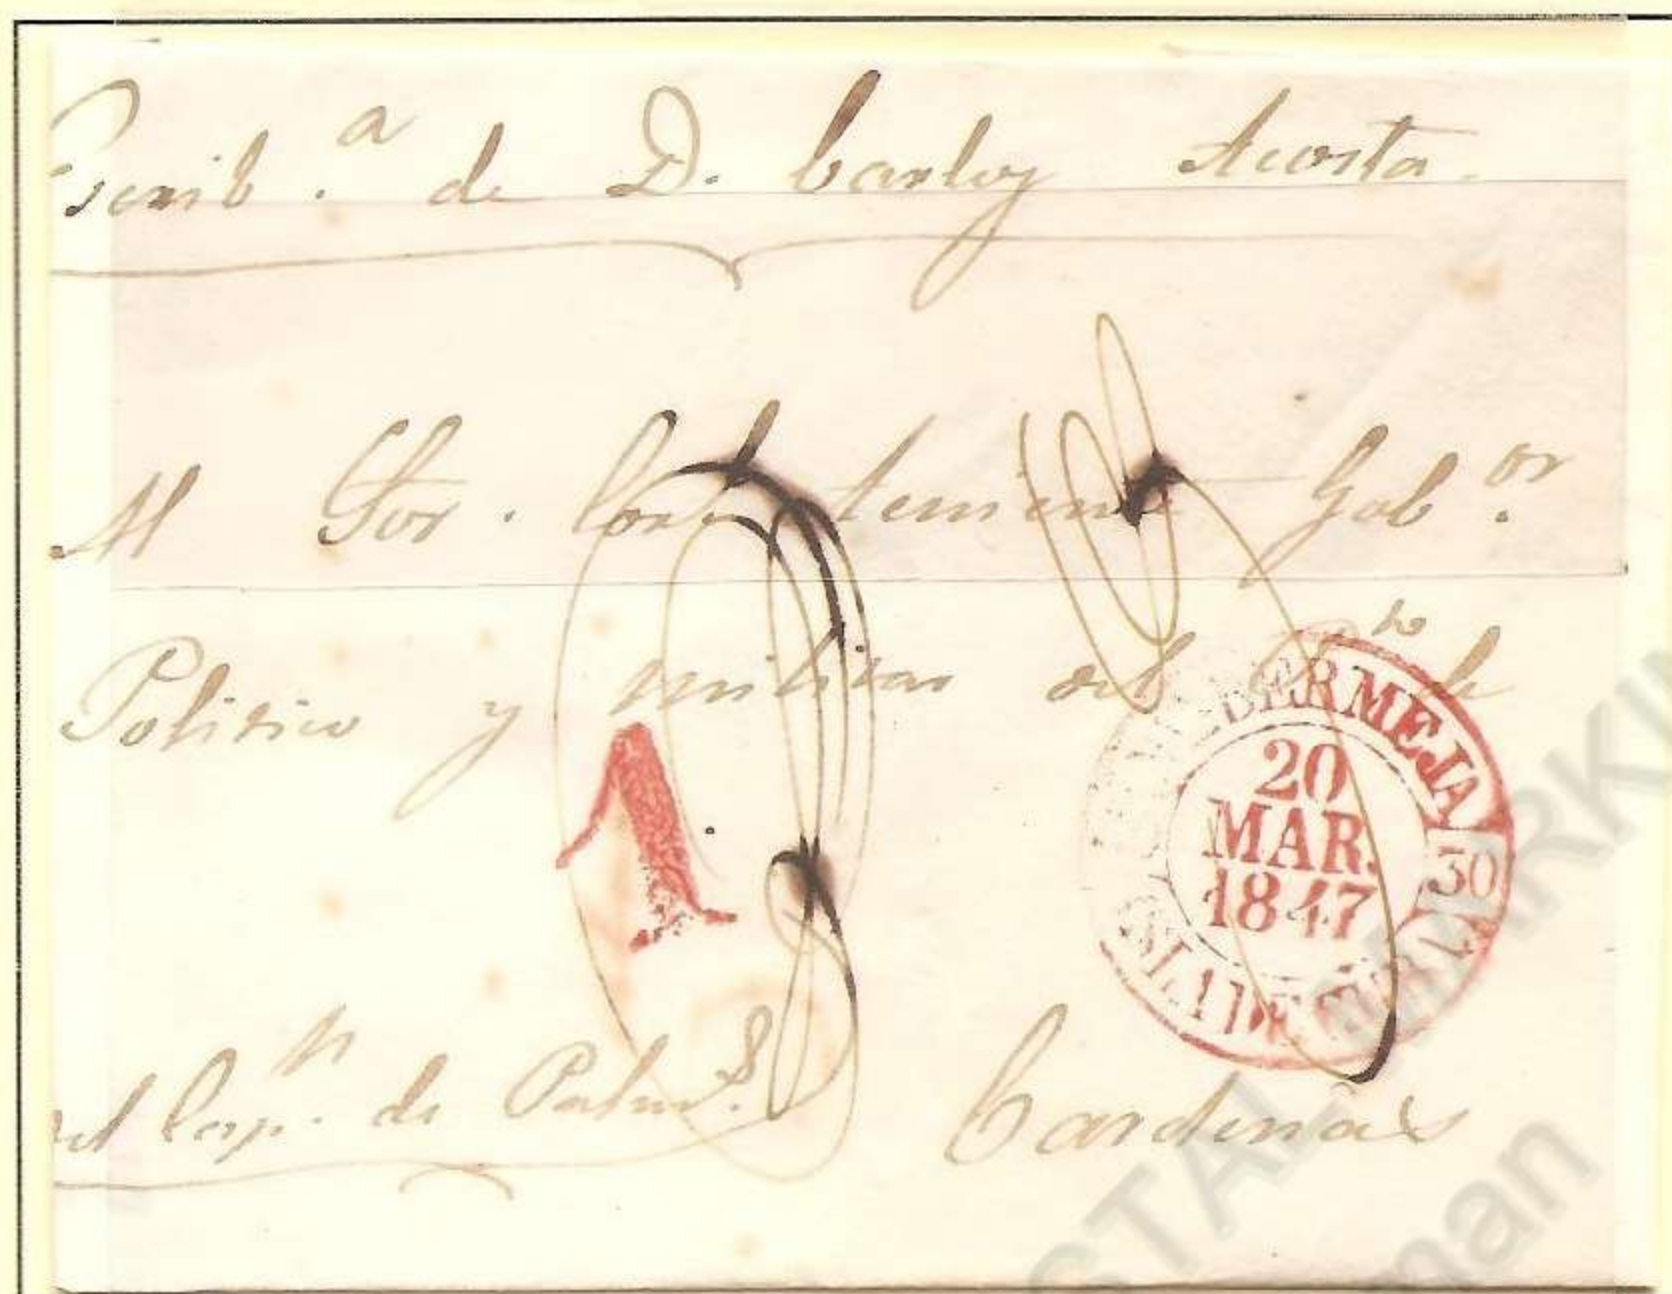 Escrib.ª de D. Carlos Acosta.
Al Sor. Cor teniente Gob.or
Politico y militar del de
1
BERMEJA
20
MAR.
1847
30
ISLA DE CUBA
del Cap.n de
Cardenas
STAL MARKIN
man